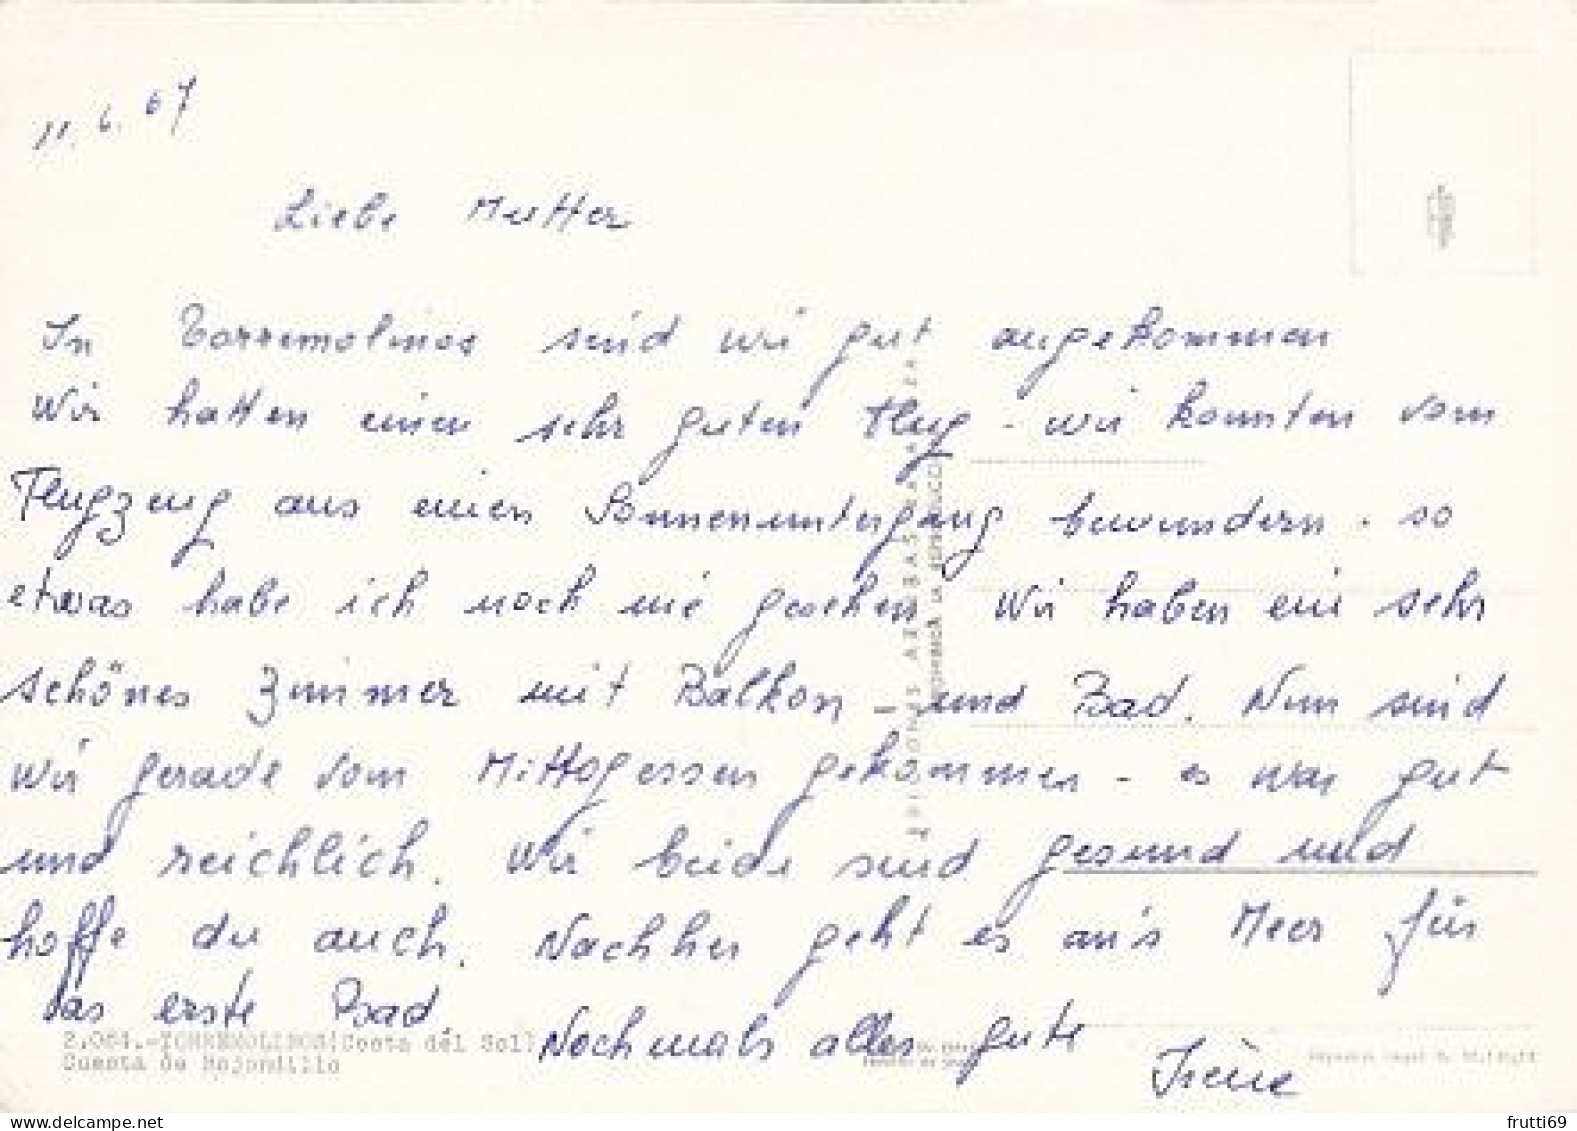 11. 6. 67
Liebe Mutter
In Torremolinos sind wir gut angekommen
Wir hatten einen sehr guten Flug - wir konnten vom
Flugzeug aus einen Sonnenuntergang bewundern. so
etwas habe ich noch nie gesehen Wir haben ein sehr
schönes Zimmer mit Balkon - und Bad. Nun sind
wir gerade vom Mittagessen gekommen - es war gut
und reichlich. Wir beide sind gesund und
hoffe du auch. Nachher geht es an's Meer für
das erste Bad
Nochmals alles gute
Irène
2.064.-TORREMOLINOS (Costa del Sol)
Cuesta de Bajondillo
PROHIBIDA LA REPRODUCCION
frutti69